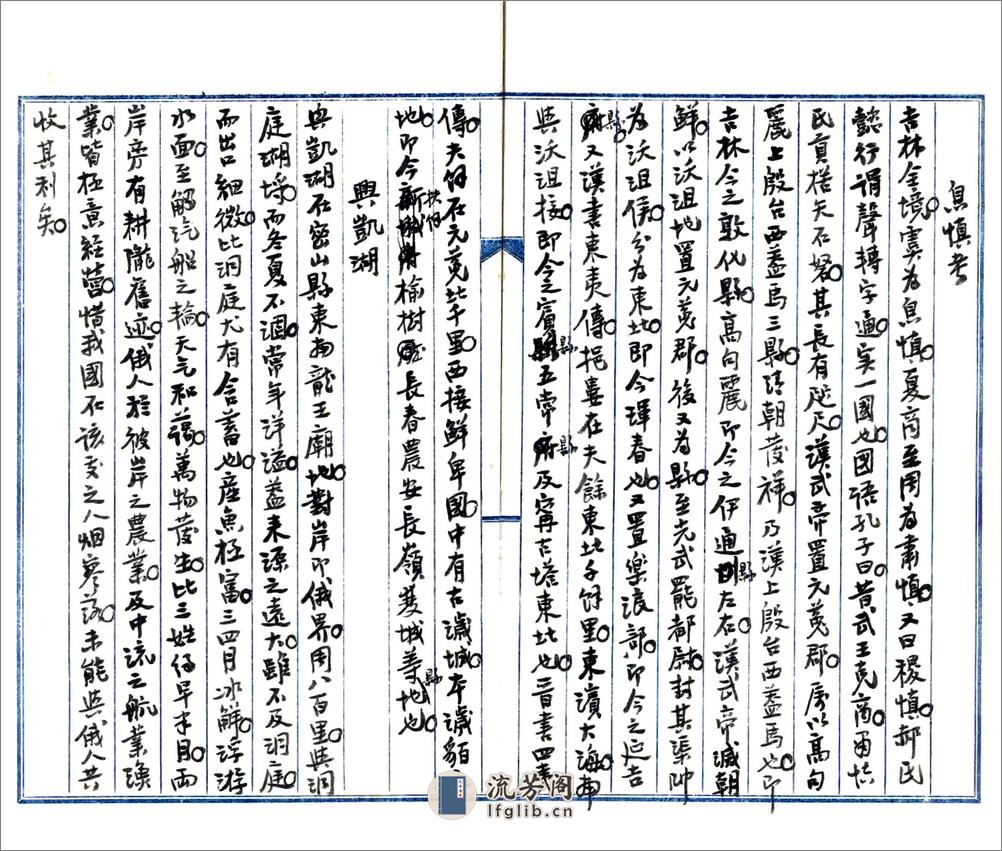 息慎考
吉林全境虞為息慎夏商至周為肅慎又曰稷慎郝氏
懿行謂聲轉字通实一國也國语孔子曰昔武王克商肅慎
氏貢楛矢石砮其長有咫尺漢武帝置元菟郡屬以高句
麗上殷台西蓋馬三縣清朝發祥乃漢上殷台西蓋馬也即
吉林今之敦化縣高句麗即今之伊通縣左右漢武帝滅朝
鮮以沃沮地置元菟郡後又為縣至光武罷都尉封其渠帥
為沃沮侯分為東北即今琿春也又置樂浪部即今之延吉
縣又漢書東夷傳挹婁在夫餘東北千餘里東濱大海南
與沃沮接即今之賓縣五常縣及寧古塔東北也晉書四夷
傳夫餘在元菟北千里西接鮮卑國中有古濊城本濊貊之
地即今扶餘榆樹長春農安長嶺雙城等縣地也
興凱湖
興凱湖在密山縣東南龍王廟地對岸即俄界周八百里與洞
庭湖埒而冬夏不涸常年洋溢蓋来源之遠大雖不及洞庭
而出口細微比洞庭尤有含蓄也産魚極富三四月冰解浮游
水面至解汽船之輪天气和藹萬物發生比三姓仔早半月两
岸旁有耕隴舊迹俄人於彼岸之農業及中流之航業漁
業皆極意經營惜我國在該交之人烟寥落未能與俄人共
收其利矣
流芳阁
lfglib.cn